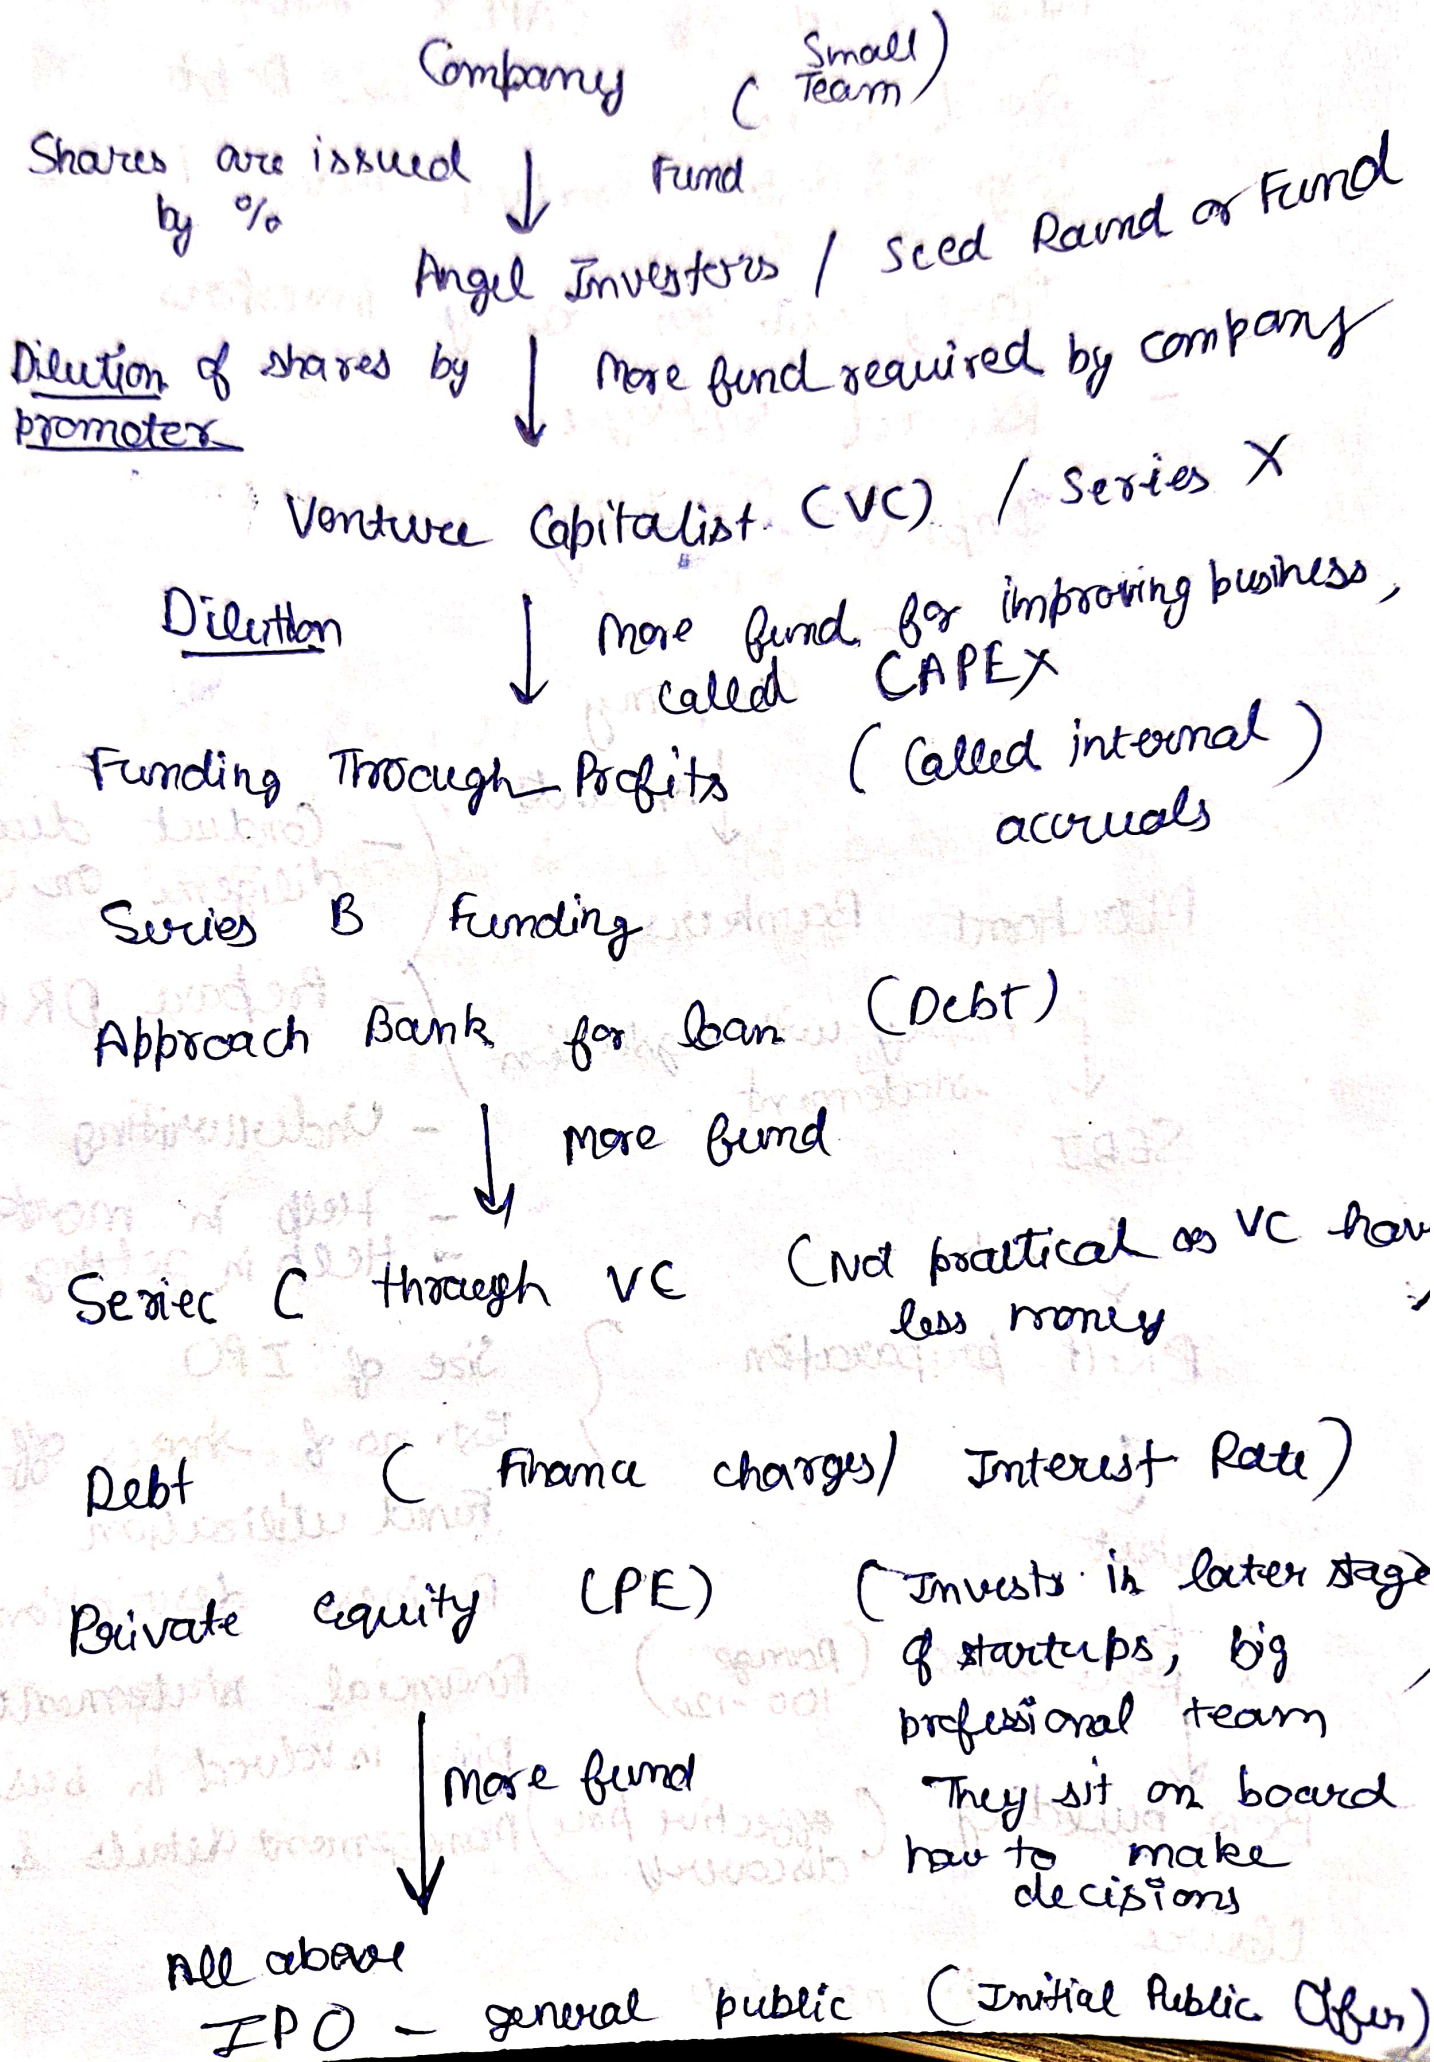 Company ( Small Team )
Shares are issued by % ↓ Fund
Angel Investors / Seed Round or Fund
Dilution of shares by promoter ↓ More fund required by company
Venture Capitalist (VC) / Series X
Dilution ↓ More fund for improving business, called CAPEX
Funding Through Profits ( Called internal accruals )
Series B Funding
Approach Bank for loan (Debt)
↓ More fund
Series C through VC (Not practical as VC have less money
Debt ( Finance charges / Interest Rate )
Private equity (PE) ( Invests in later stage
of startups, big
professional team
They sit on board
↓ More fund
how to make
decisions
All above
IPO - general public ( Initial Public Offer)